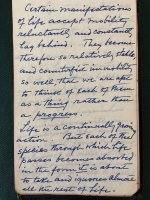 Certain manifestations
of life accept mobility
reluctantly and constantly
lag behind. They become
therefore so relatively stable,
and counterfeit immobility
so well that we are apt
to think of each of them
as a thing rather than
a progress.
Life is a continually growing
action. But each of the
species through which life
passes becomes absorbed
in the form it is about
to take, and ignores almost
all the rest of life.